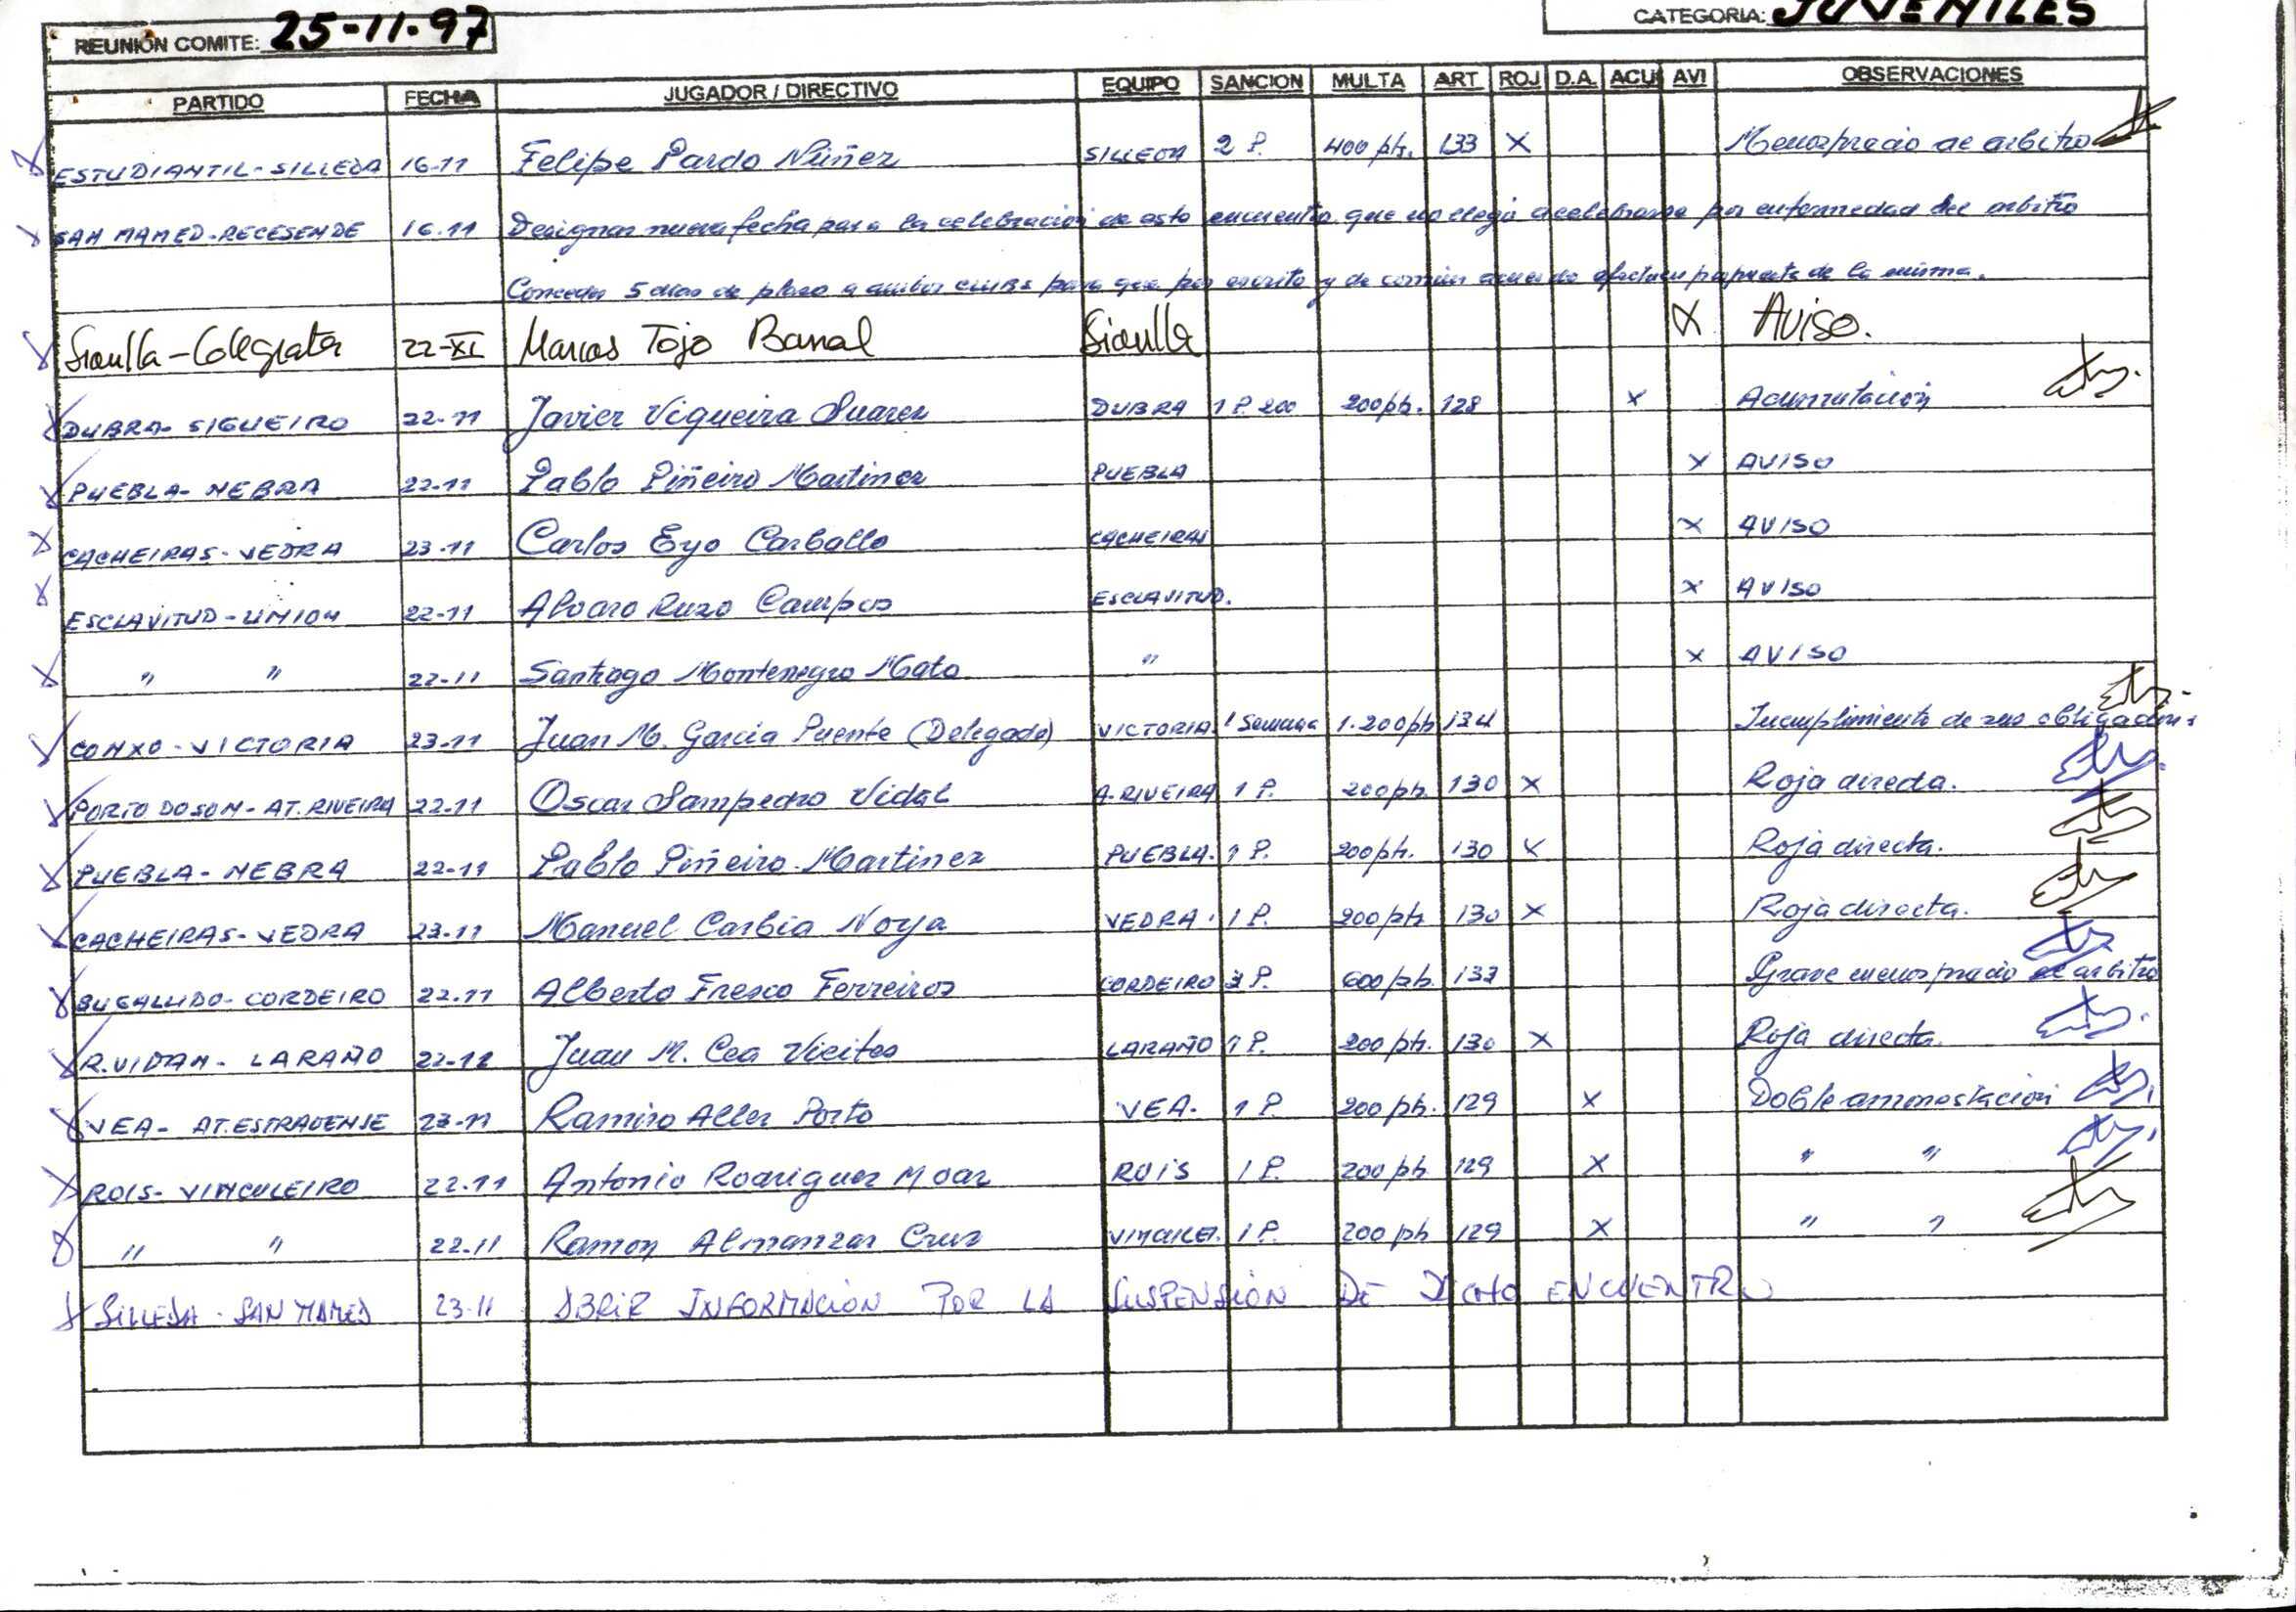 REUNIÓN COMITE: 25-11-97 CATEGORIA: JUVENILES
PARTIDO FECHA JUGADOR / DIRECTIVO EQUIPO SANCION MULTA ART ROJ D.A. ACU AVI OBSERVACIONES
ESTUDIANTIL-SILLEDA 16-11 Felipe Pardo Núñez SILLEDA 2 P. 400 pts. 133 X Menosprecio al arbitro
SAN MAMED-RECESENDE 16-11 Designar nueva fecha para la celebración de este encuentro que no llegó a celebrarse por enfermedad del arbitro
Conceder 5 dias de plazo a ambos clubs para que por escrito y de común acuerdo efectuen propuesta de la misma.
Sionlla-Colegiata 22-XI Marcos Tojo Barral Sionlla X Aviso.
DUBRA-SIGUEIRO 22-11 Javier Viqueira Suarez DUBRA 1 P. 200 200 pts. 128 X Acumulación
PUEBLA-NEBRA 22-11 Pablo Piñeiro Martinez PUEBLA X AVISO
CACHEIRAS-VEDRA 23-11 Carlos Eyo Carballo CACHEIRAS X AVISO
ESCLAVITUD-UNION 22-11 Alvaro Buzo Campos ESCLAVITUD. X AVISO
" " 22-11 Santiago Montenegro Mato " X AVISO
CONXO-VICTORIA 23-11 Juan M. Garcia Puente (Delegado) VICTORIA 1 Semana 1.200 pts 134 Incumplimiento de sus obligaciones
PORTO DO SON-AT. RIVEIRA 22-11 Oscar Sampedro Vidal A.RIVEIRA 1 P. 200 pts 130 X Roja directa.
PUEBLA-NEBRA 22-11 Pablo Piñeiro Martinez PUEBLA. 1 P. 200 pts. 130 X Roja directa.
CACHEIRAS-VEDRA 23-11 Manuel Carbia Noya VEDRA. 1 P. 200 pts. 130 X Roja directa.
BUGALLIDO-CORDEIRO 22-11 Alberto Fresco Ferreiros CORDEIRO 3 P. 600 pts. 133 Grave menosprecio al arbitro
R.VIDAN-LARAÑO 22-11 Juan M. Cea Vieites LARAÑO 1 P. 200 pts. 130 X Roja directa.
VEA-AT.ESTRADENSE 23-11 Ramiro Aller Porto VEA. 1 P. 200 pts. 129 X Doble amonestacion
ROIS-VINCULEIRO 22-11 Antonio Rodriguez Moar ROIS 1 P. 200 pts 129 X " "
" " 22-11 Ramon Almanzar Cruz 1 P. 200 pts 129 X " "
SILLEDA-SAN MAMED 23-11 ABRIR INFORMACION POR LA SUSPENSION DE DICHO ENCUENTRO